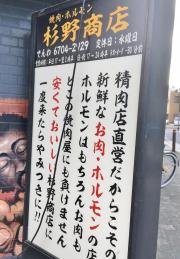 焼肉・ホルモン
杉野商店
でんわ 6704-2129 定休日:水曜日
精肉店直営だからこその
新鮮なお肉・ホルモンの店
ホルモンはもちろんお肉も
どこの焼肉屋にも負けません
安くておいしい杉野商店に
一度来たらやみつきに!!